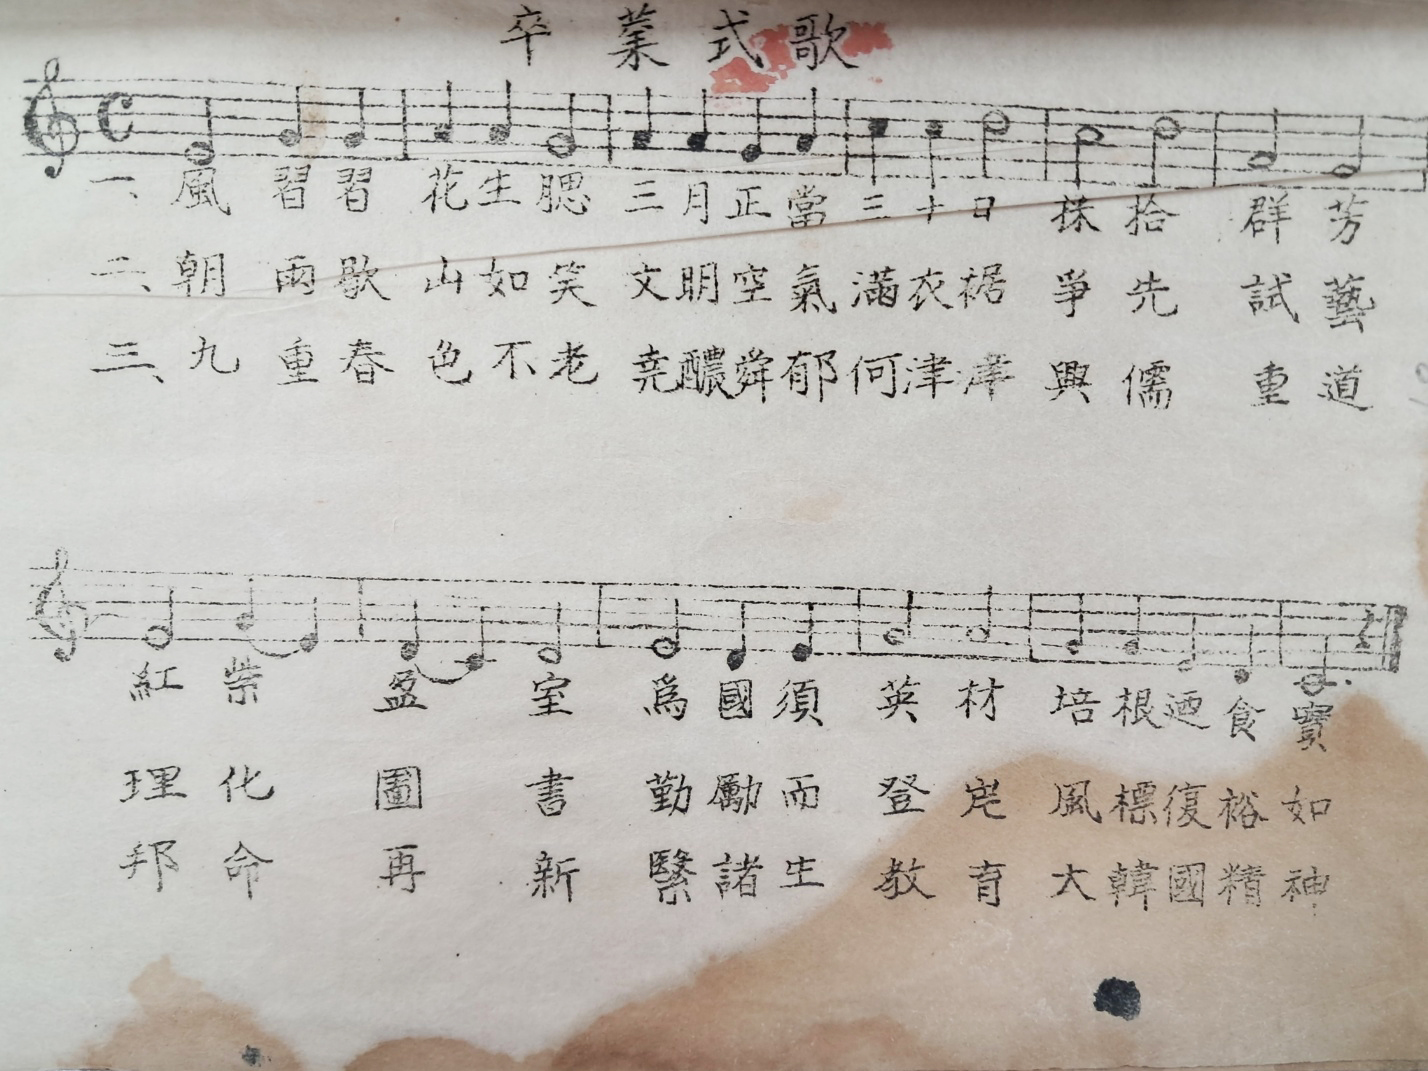 卒業式歌
一、風習習花生腮三月正當三十日採拾群芳
二、朝雨歇山如笑文明空氣滿衣裾爭先試藝
三、九重春色不老堯醲舜郁何津津興儒重道
紅紫盈室爲國須英材培根迺食實
理化圖書勤勵而登崑風標復裕如
邦命再新緊諸生教育大韓國精神